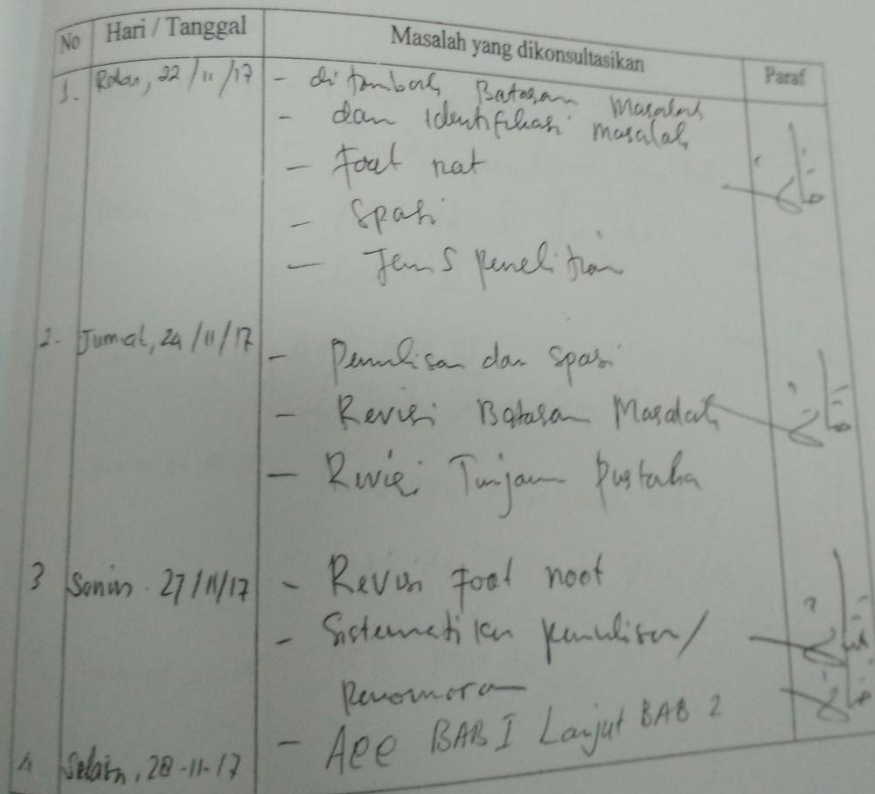 No Hari / Tanggal Masalah yang dikonsultasikan Paraf
1. Rabu, 22/11/17 - di tambah Batasan Masalah
- dan Identifikasi masalah
- Foot not
- Spasi
- Jenis penelitian
2. Jumat, 24/11/17 - Penulisan dan spasi
- Revisi Batasan Masalah
- Revisi Tinjauan Pustaka
3 Senin 27/11/17 - Revisi Foot noot
- Sistematika penulisan/
Penomoran
4 Selasa, 28-11-17 - Acc BAB I Lanjut BAB 2